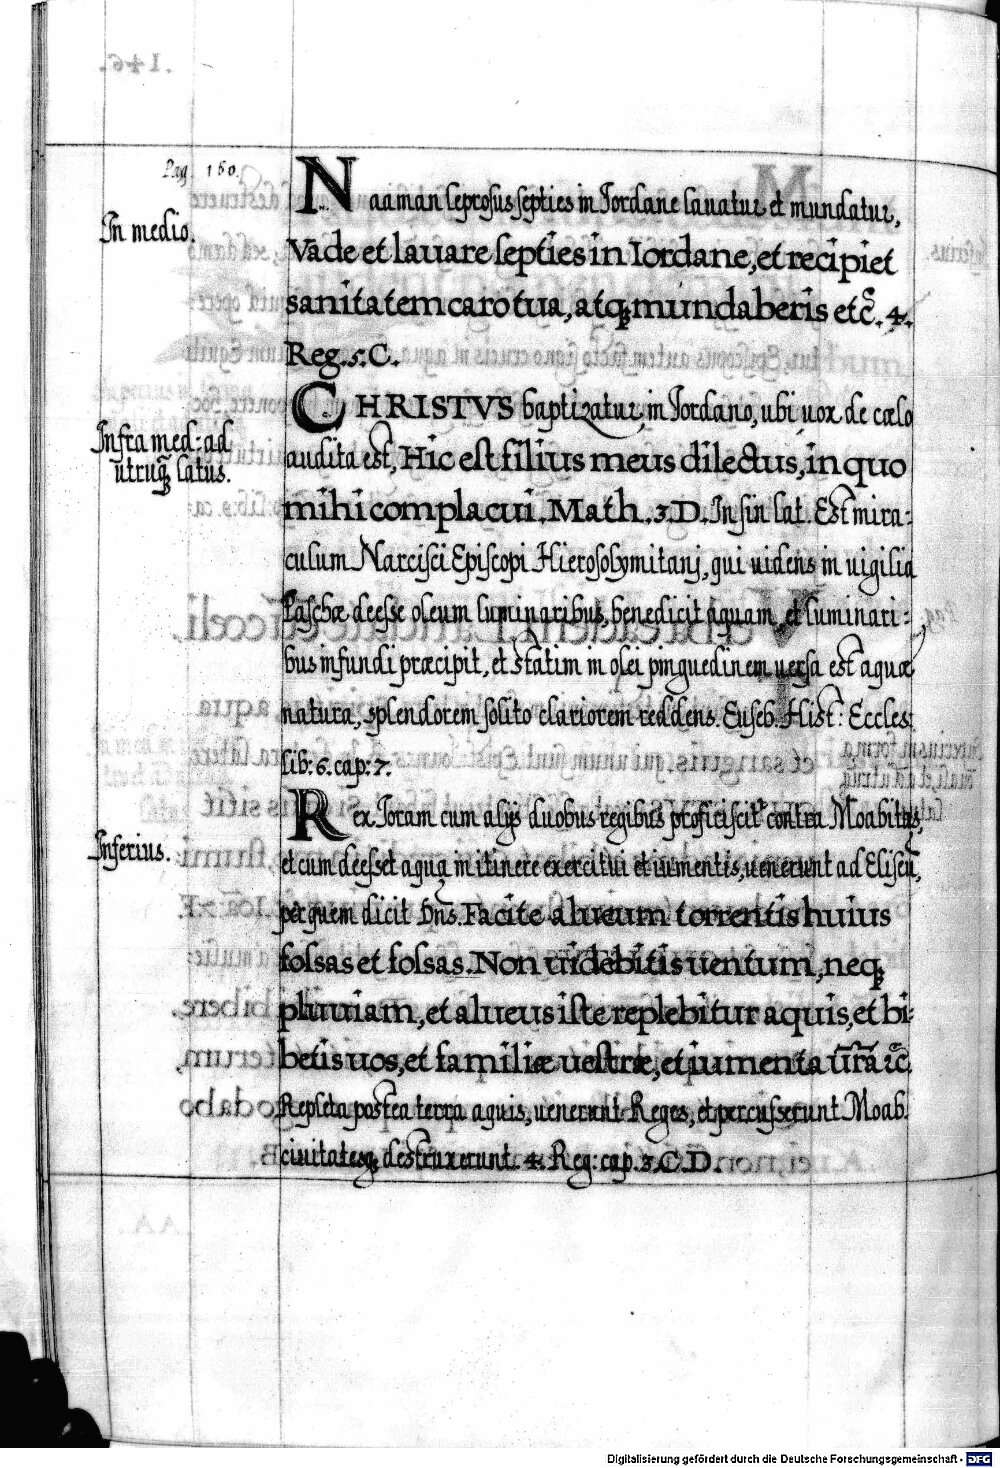 Pag. 160.
In medio.
Naaman leprosus septies in Iordane lauatur et mundatur,
Vade et lauare septies in Iordane, et recipiet
sanitatem caro tua, atq; mundaberis etc̃. 4.
Reg. 5. C.
Infra med: ad
utruq; latus.
CHRISTVS baptizatur in Iordano, ubi uox de cælo
audita est, Hic est filius meus dilectus, in quo
mihi complacui. Math. 3. D. In sin lat. Est mira:
culum Narcisci Episcopi Hierosolymitani, qui uidens in uigilia
Paschæ deesse oleum luminaribus, benedicit aquam, et luminari:
bus infundi præcipit, et statim in olei pinguedinem uersa est aquæ
natura, splendorem solito clariorem reddens. Euseb. Hist: Eccles:
lib: 6. cap: 7.
Inferius.
Rex Ioram cum alijs duobus regibus proficiscitr contra Moabitas,
et cum deesset aqua in itinere exercitui et iumentis, uenerunt ad Eliseu,
per quem dicit Dns. Facite alueum torrentis huius
fossas et fossas. Non uidebitis uentum, neq;
pluuiam, et alueus iste replebitur aquis, et bi:
betis uos, et familiæ uestræ, et iumenta ur̃a ⁊c̃.
Repleta postea terra aquis, uenerunt Reges, et percusserunt Moab.
ciuitatesq; destruxerunt. 4. Reg: cap. 3. C. D.
Digitalisierung gefördert durch die Deutsche Forschungsgemeinschaft - DFG